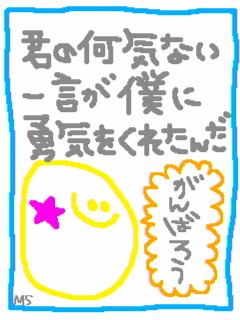 君の何気ない
一言が僕に
勇気をくれたんだ
がんばろう
MS